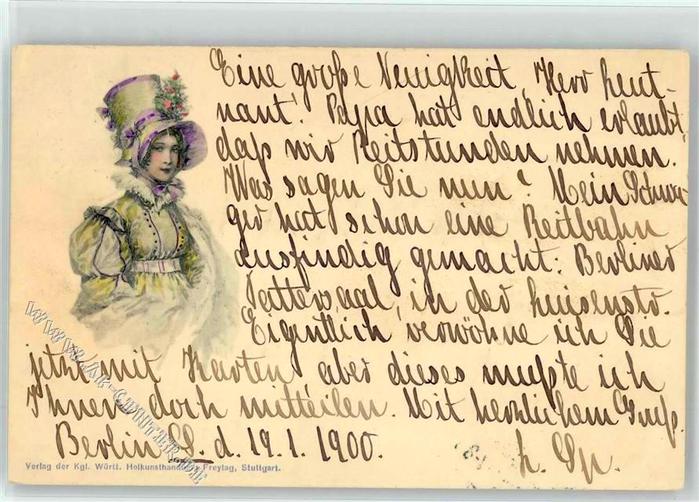 Eine große Neuigkeit, Herr Leut-
nant! Papa hat endlich erlaubt,
daß wir Reitstunden nehmen.
Was sagen Sie nun? Mein Schwa-
ger hat schon eine Reitbahn
ausfindig gemacht: Berliner
Tattersaal, in der Luisenstr.
Eigentlich verwöhne ich Sie
jetzt mit Karten aber dieses mußte ich
Ihnen doch mitteilen. Mit herzlichem Gruß.
Berlin d. 19.1.1900.
Verlag der Kgl. Württ. Hofkunsthandlung Freytag, Stuttgart.